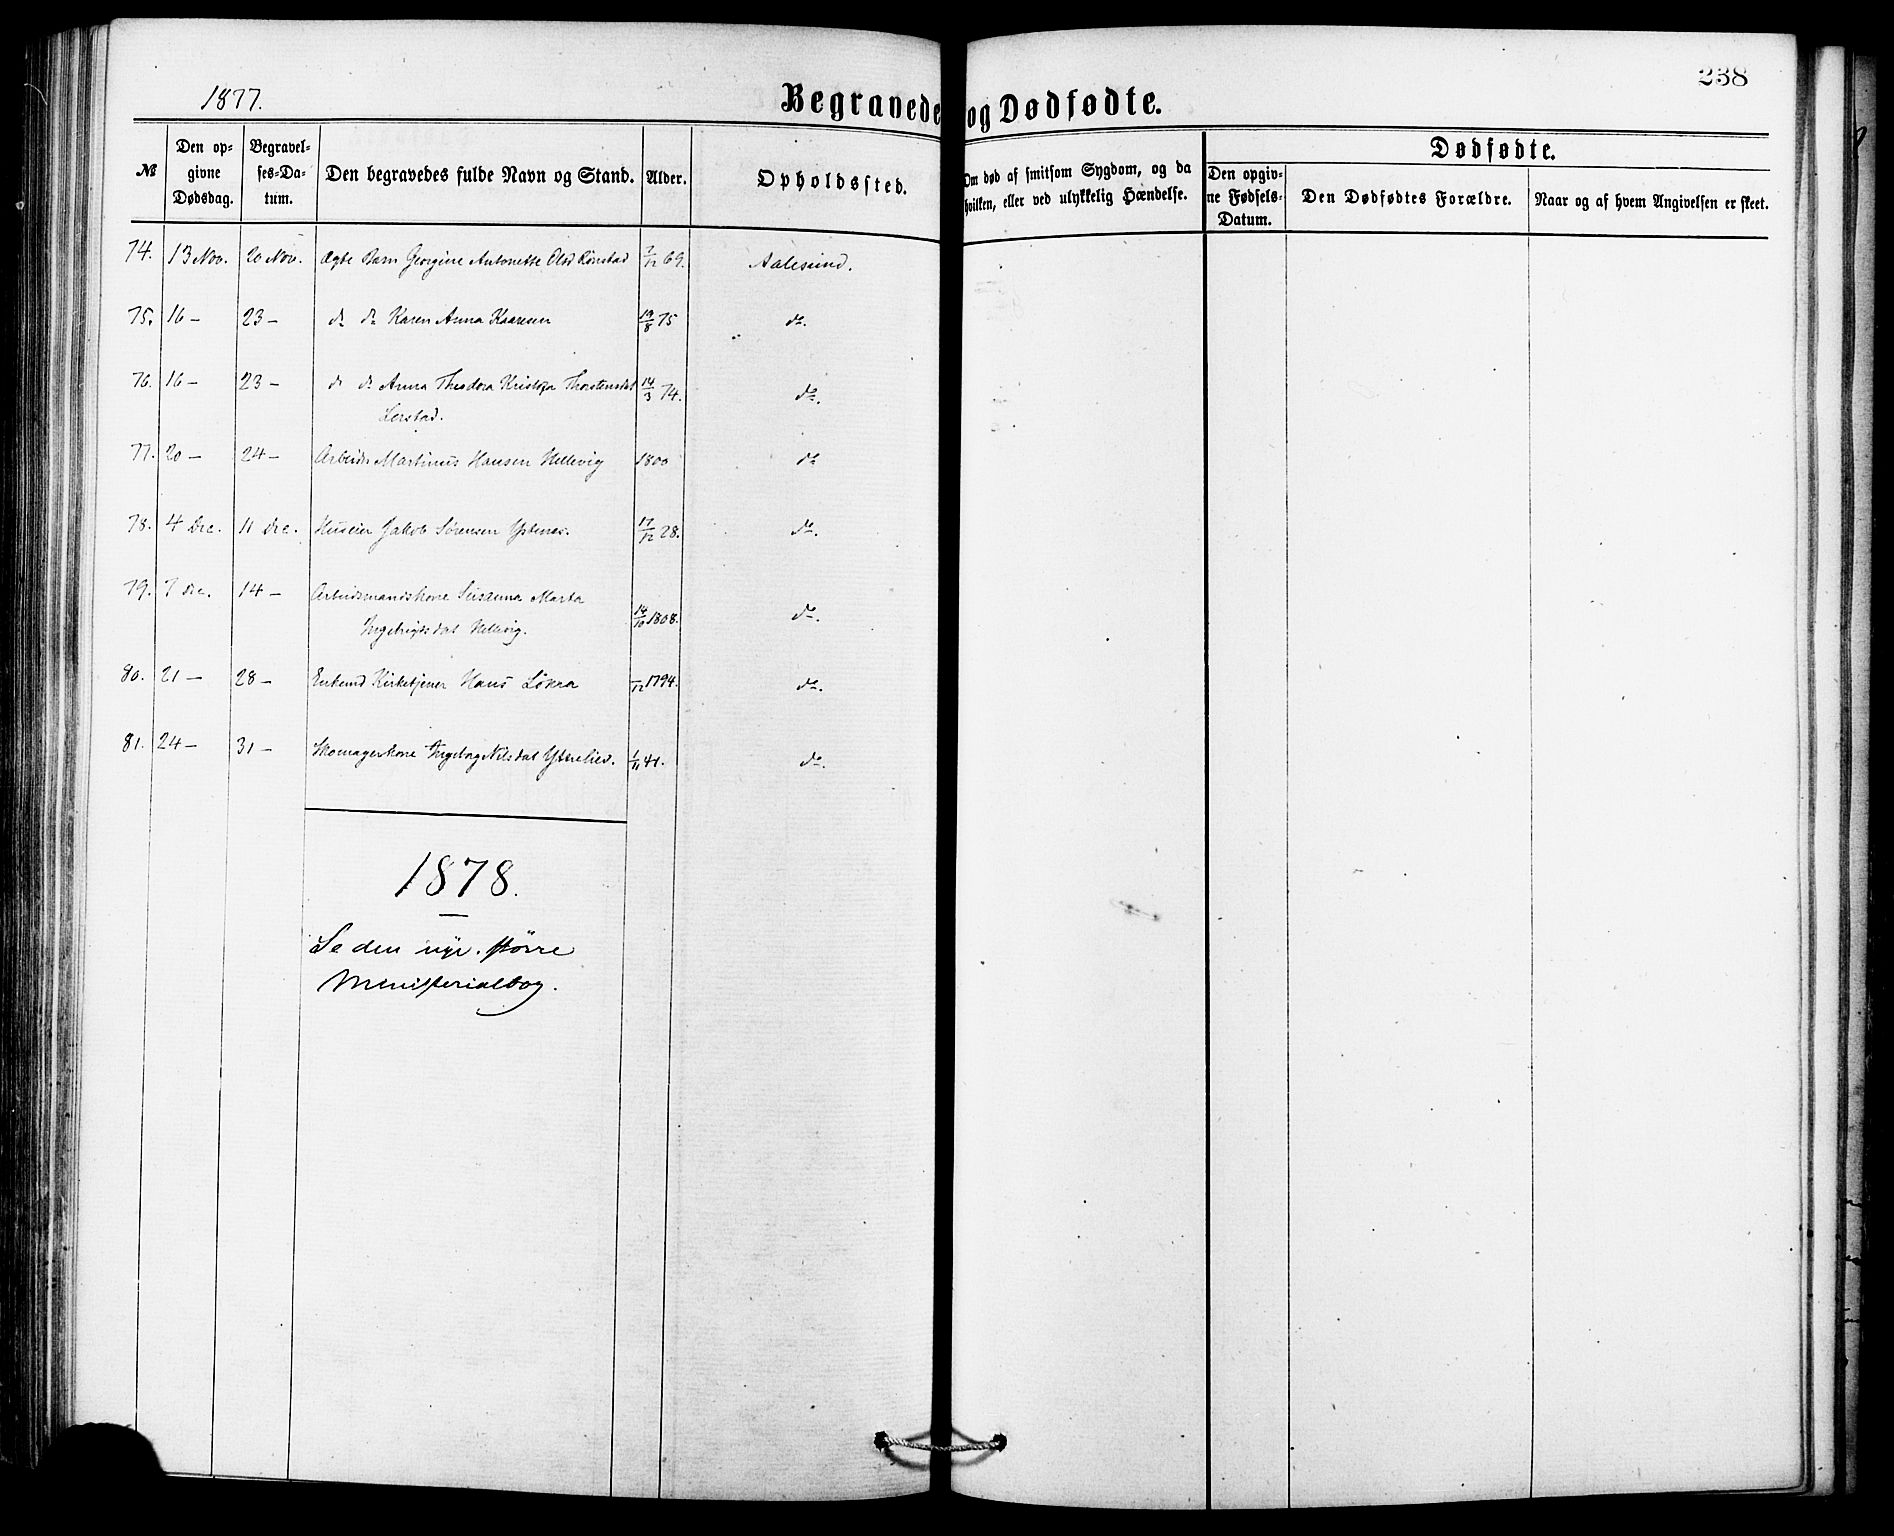 238
1877.
Begravede og Dødfødte.
№
Den op-
givne
Dødsdag.
Begravel-
ses-Da-
tum.
Den begravedes fulde Navn og Stand.
Alder.
Opholdssted.
Om død af smitsom Sygdom, og da
hvilken, eller ved ulykkelig Hændelse.
Dødfødte.
Den opgiv-
ne Fødsels-
Datum.
Den Dødfødtes Forældre.
Naar og af hvem Angivelsen er skeet.
74. 13 Nov. 20 Nov. Ægte Barn Georgine Antonette Olsd Rønstad 7/12 69. Aalesund.
75. 16 – 23 – do do Karen Anna Kaaresen 19/8 75 do.
76. 16 – 23 – do do Anna Theodora Kristofa Thorstensdat 14/3 74. do.
Lerstad.
77. 20 – 24 – Arbeider Martinus Hansen Hellevig 1800 do
78. 4 Dec. 11 Dec. Huseier Jakob Sørensen Ystenes. 17/12 28. do.
79. 7 Dec. 14 – Arbeidsmandskone Susanna Marta
Ingebrigtsdat Hellevig. 14/10 1808. do.
80. 21 – 28 – Enkemd Kirketjener Hans Løkra /12 1794. do.
81. 24 – 31 – Skomagerkone Ingeborg Nilsdat Ytrelied. 1/11 41. do.
1878.
Se den nye. større
Ministerialbog.